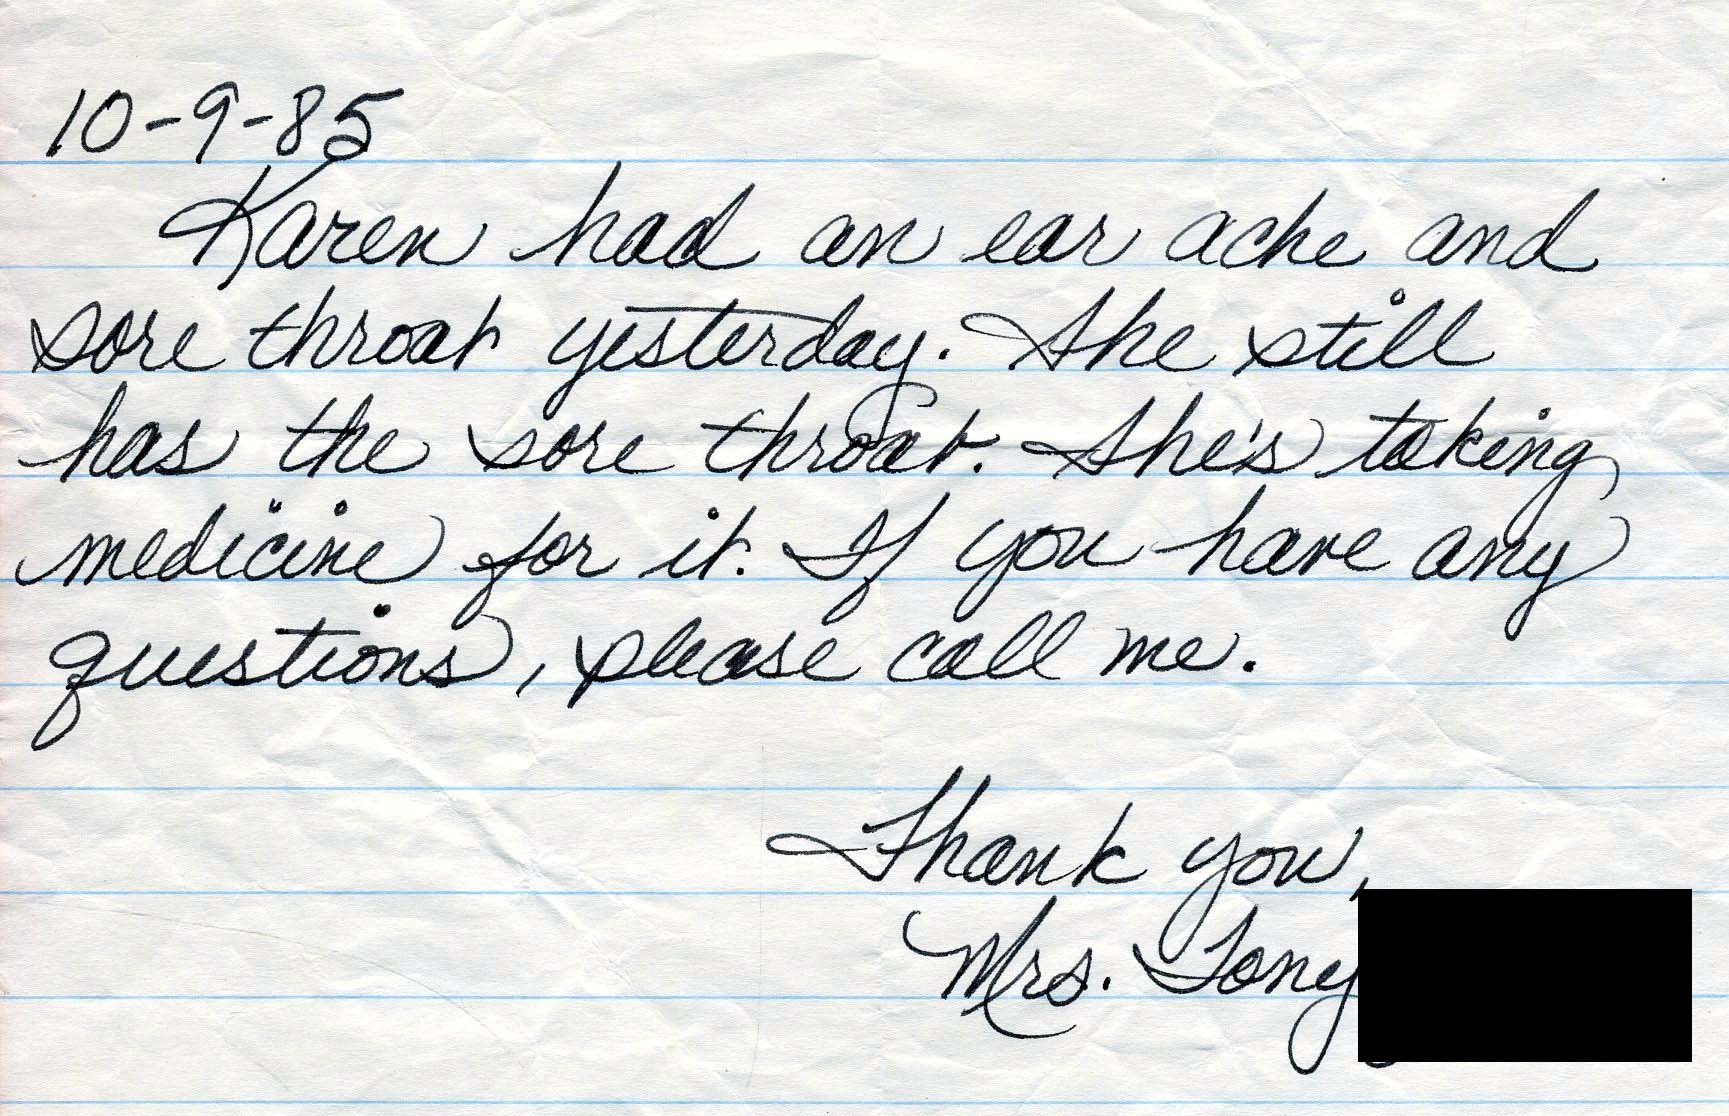 10-9-85
Karen had an ear ache and
sore throat yesterday. She still
has the sore throat. She's taking
medicine for it. If you have any
questions, please call me.
Thank you,
Mrs. Tony